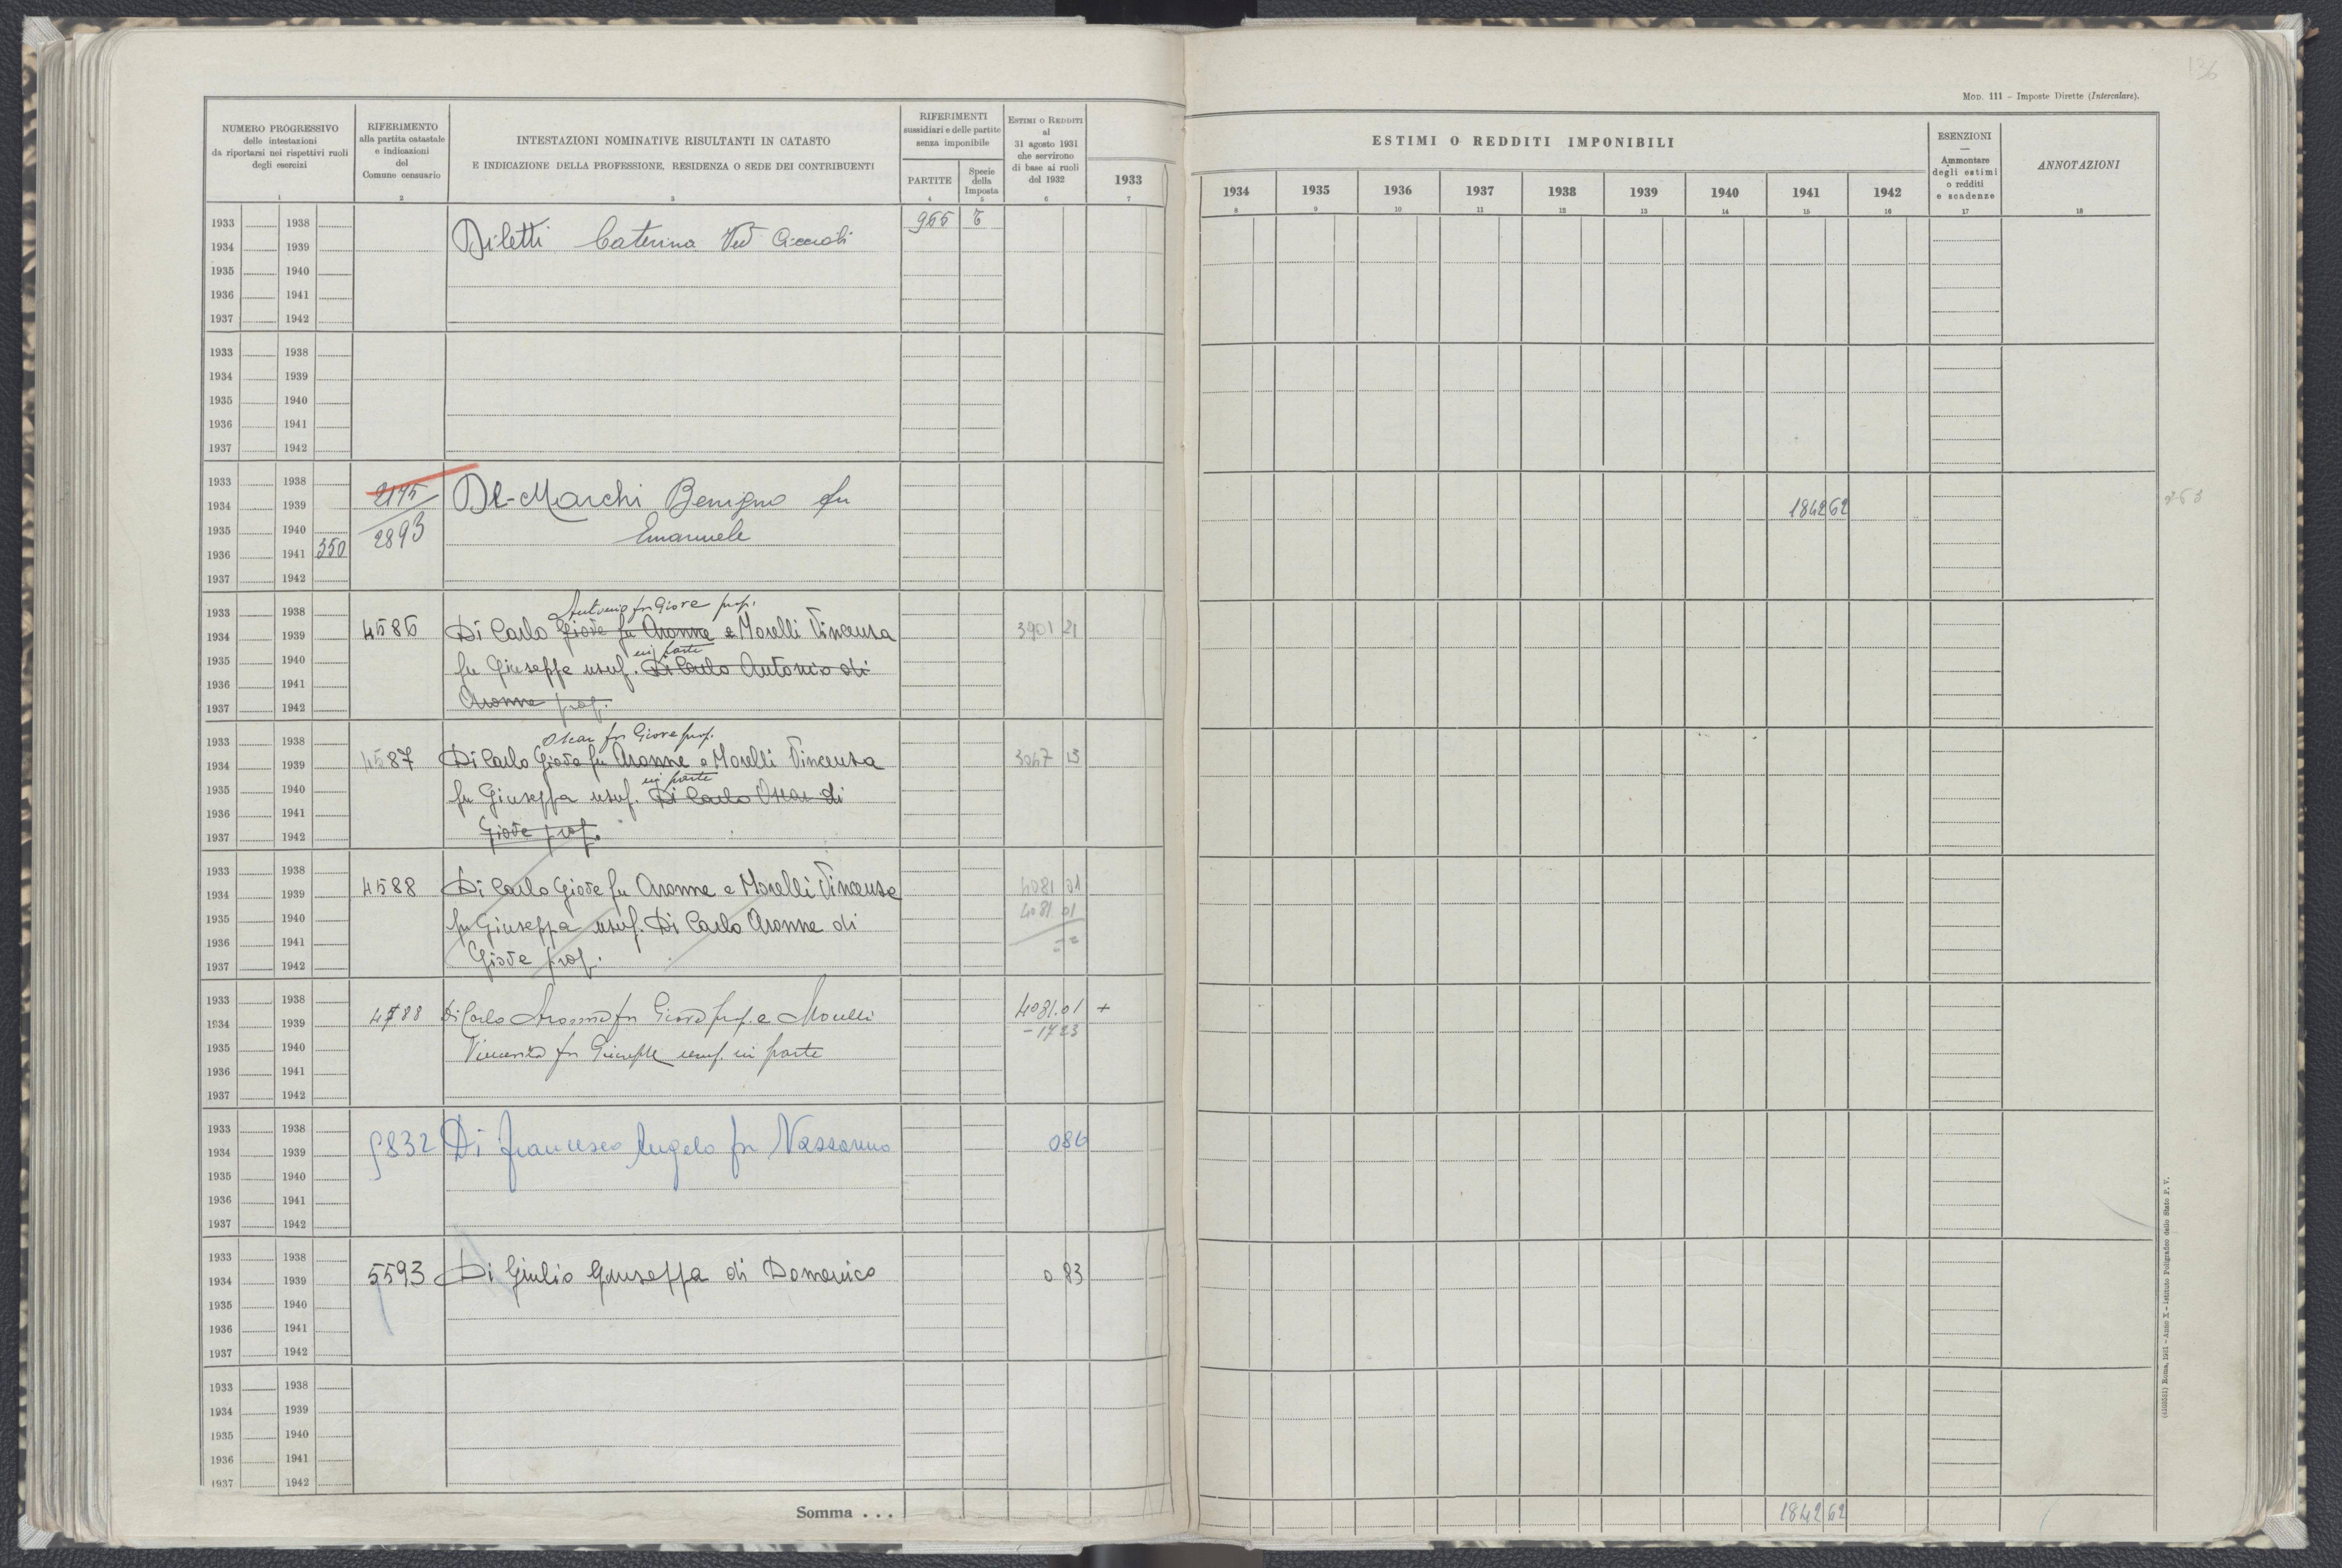 136
MOD. 111 - Imposte Dirette (Intercalare).
NUMERO PROGRESSIVO
delle intestazioni
da riportarsi nei rispettivi ruoli
degli esercizi
1
RIFERIMENTO
alla partita catastale
e indicazioni
del
Comune censuario
2
INTESTAZIONI NOMINATIVE RISULTANTI IN CATASTO
E INDICAZIONE DELLA PROFESSIONE, RESIDENZA O SEDE DEI CONTRIBUENTI
3
RIFERIMENTI
sussidiari e delle partite
senza imponibile
PARTITE
4
Specie
della
Imposta
5
ESTIMI O REDDITI
al
31 agosto 1931
che servirono
di base ai ruoli
del 1932
6
1933
7
ESTIMI O REDDITI IMPONIBILI
1934 1935 1936 1937 1938 1939 1940 1941 1942
8 9 10 11 12 13 14 15 16
ESENZIONI
Ammontare
degli estimi
o redditi
e scadenze
17
ANNOTAZIONI
18
1933 1938
965
1934 1939 Diletti Caterina Ved
1935 1940
1936 1941
1937 1942
1933 1938
1934 1939
1935 1940
1936 1941
1937 1942
1933 1938
2175 De-Marchi Benigno fu
1934 1939
1842 62
1935 1940
2893 Emanuele
1936 1941 350
1937 1942
1933 1938
Antonio fu Giove prop.
1934 1939 4586 Di Carlo Giove fu Aronne e Morelli Vincenza 3901 21
in parte
1935 1940 fu Giuseppe usuf. Di Carlo Antonio di
1936 1941
1937 1942 Aronne prop.
1933 1938
Oscar fu Giove prop.
1934 1939 4587 Di Carlo Giove fu Aronne e Morelli Vincenza 3047 13
in parte
1935 1940 fu Giuseppe usuf. Di Carlo Oscar di
1936 1941
1937 1942 Giove prop.
1933 1938
1934 1939 4588 Di Carlo Giove fu Aronne e Morelli Vincenza 4081 01
1935 1940 fu Giuseppe usuf. Di Carlo Aronne di 4081.01
1936 1941
1937 1942 Giove prop.
1933 1938
1934 1939 4588 Di Carlo Aronne fu Giove prop. e Morelli 4081.01 +
- 1723
1935 1940 Vincenza fu Giuseppe usuf. in parte
1936 1941
1937 1942
1933 1938
1934 1939 5832 Di Francesco Angelo fu 0 86
1935 1940
1936 1941
1937 1942
1933 1938
1934 1939 5593 Di Giulio Giuseppa di Domenico 0 83
1935 1940
1936 1941
1937 1942
1933 1938
1934 1939
1935 1940
1936 1941
1937 1942
Somma . . .
1842 62